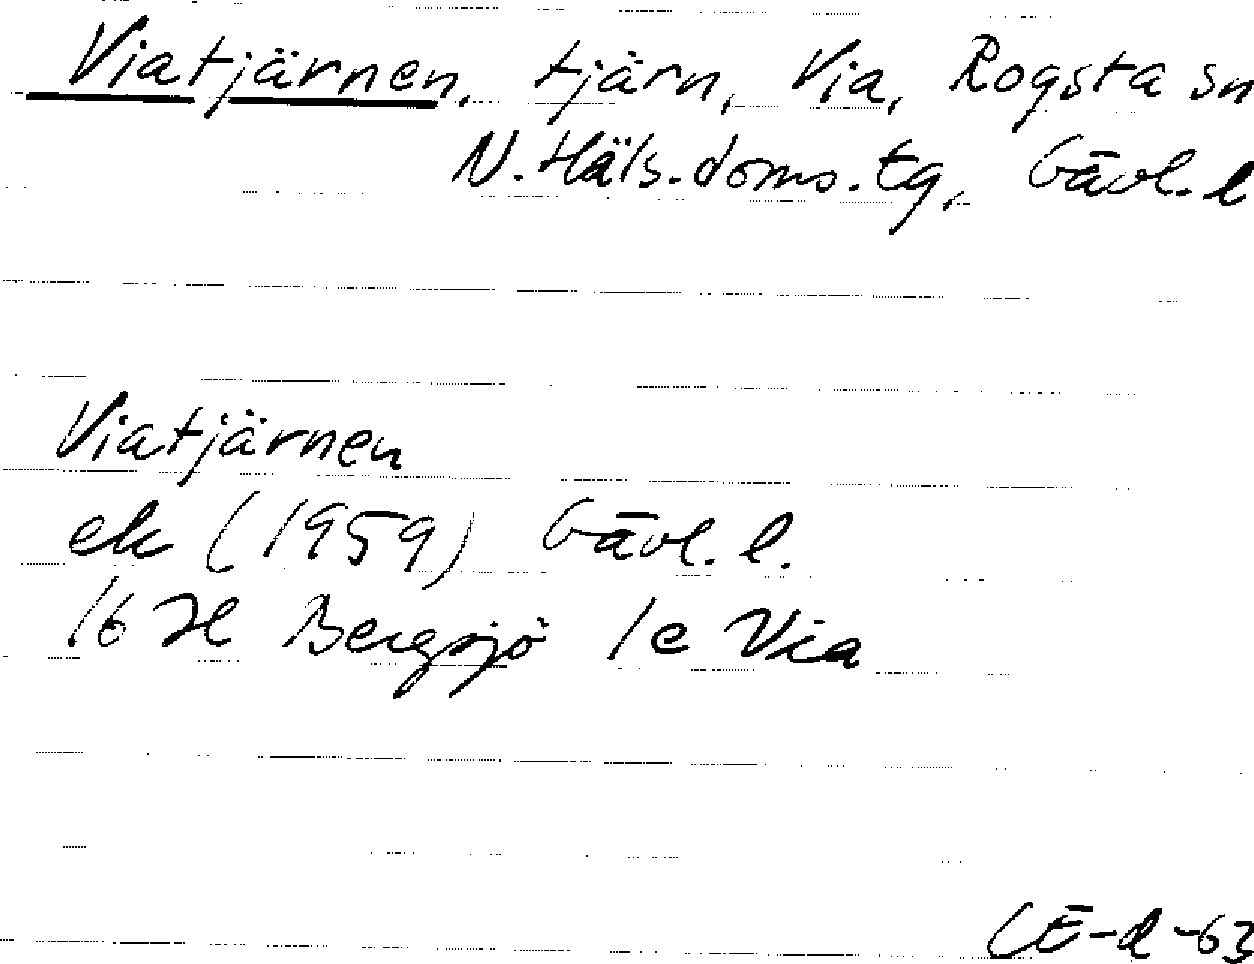 Viatjärnen, tjärn, Via, Rogsta sn
N. Häls. doms. tg, Gävl. l
Viatjärnen
ek (1959) Gävl. l.
16 H Bergsjö 1e Via
CE-d-63